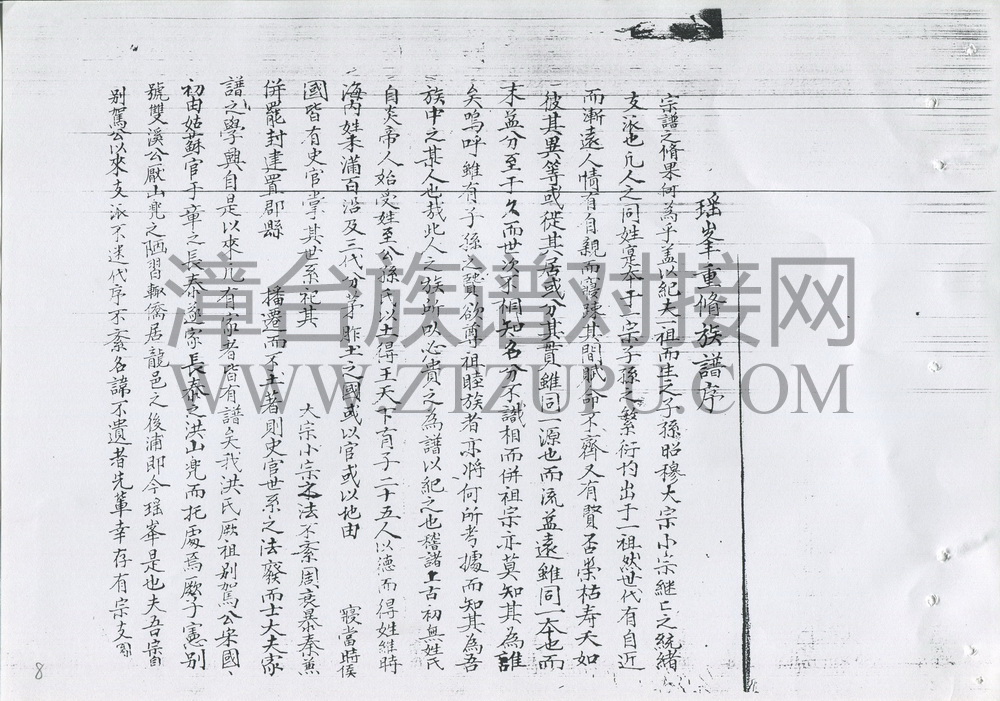 瑶峯重脩族譜序
宗譜之脩果何為乎蓋以紀太祖而生之子孫昭穆大宗小宗継亡之統緒
支派也凢人之同姓寔本于一宗子孫之繁衍均出于一祖然世代有自近
而漸遠人情有自親而寖踈其間賦命不齊又有賢否榮枯寿夭如
彼其異等或從其居或分其貫雖同一源也而流益遠雖同一本也而
末益分至于久而世次不相知名分不識相而併祖宗亦莫知其為誰
矣嗚呼雖有子孫之賢欲尊祖睦族者亦將何所考據而知其為吾
族中之某人也哉此人之族所以必貴之為譜以紀之也稽諸上古初無姓氏
自炎帝人始受姓至公孫氏以土得王天下有子二十五人以德而得姓維時
海内姓未滿百沿及三代分茅胙土之國或以官或以地由 寢當時侯
國皆有史官掌其世系祀其 大宗小宗之法不紊周衰暴秦兼
併罷封建置郡縣 播遷而不土著則史官世系之法廢而士大夫家
譜之學興自是以來凢有家者皆有譜矣我洪氏厥祖别駕公宋國
初由姑蘇官于章之長泰遂家長泰之洪山兠而托處焉厥子憲别
號雙溪公厭山兠之陋習輙僑居龍邑之後浦即今瑶峯是也夫吾嘗
别駕公以來支派不迷代序不紊名諱不遺者先輩幸存有宗支
8
漳台族谱对接网
WWW.ZTZUPU.COM